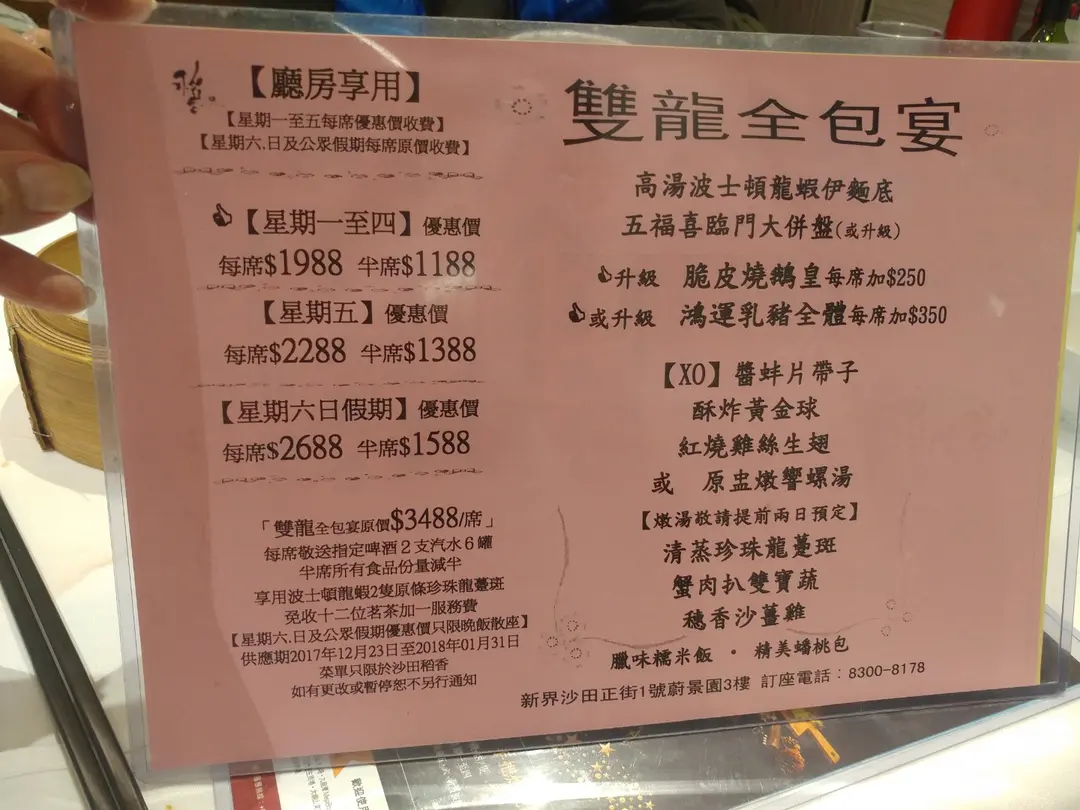 【廳房享用】
【星期一至五每席優惠價收費】
【星期六.日及公眾假期每席原價收費】
【星期一至四】優惠價
每席$1988 半席$1188
【星期五】優惠價
每席$2288 半席$1388
【星期六日假期】優惠價
每席$2688 半席$1588
「雙龍全包宴原價$3488/席」
每席敬送指定啤酒2支汽水6罐
半席所有食品份量減半
享用波士頓龍蝦2隻原條珍珠龍躉斑
免收十二位茗茶加一服務費
【星期六.日及公眾假期優惠價只限晚飯散座】
供應期2017年12月23日至2018年01月31日
菜單只限於沙田稻香
如有更改或暫停恕不另行通知
雙龍全包宴
高湯波士頓龍蝦伊麵底
五福喜臨門大併盤(或升級)
升級 脆皮燒鵝皇每席加$250
或升級 鴻運乳豬全體每席加$350
【XO】醬蚌片帶子
酥炸黃金球
紅燒雞絲生翅
或 原盅燉響螺湯
【燉湯敬請提前兩日預定】
清蒸珍珠龍躉斑
蟹肉扒雙寶蔬
穗香沙薑雞
臘味糯米飯 · 精美蟠桃包
新界沙田正街1號蔚景園3樓 訂座電話：8300-8178